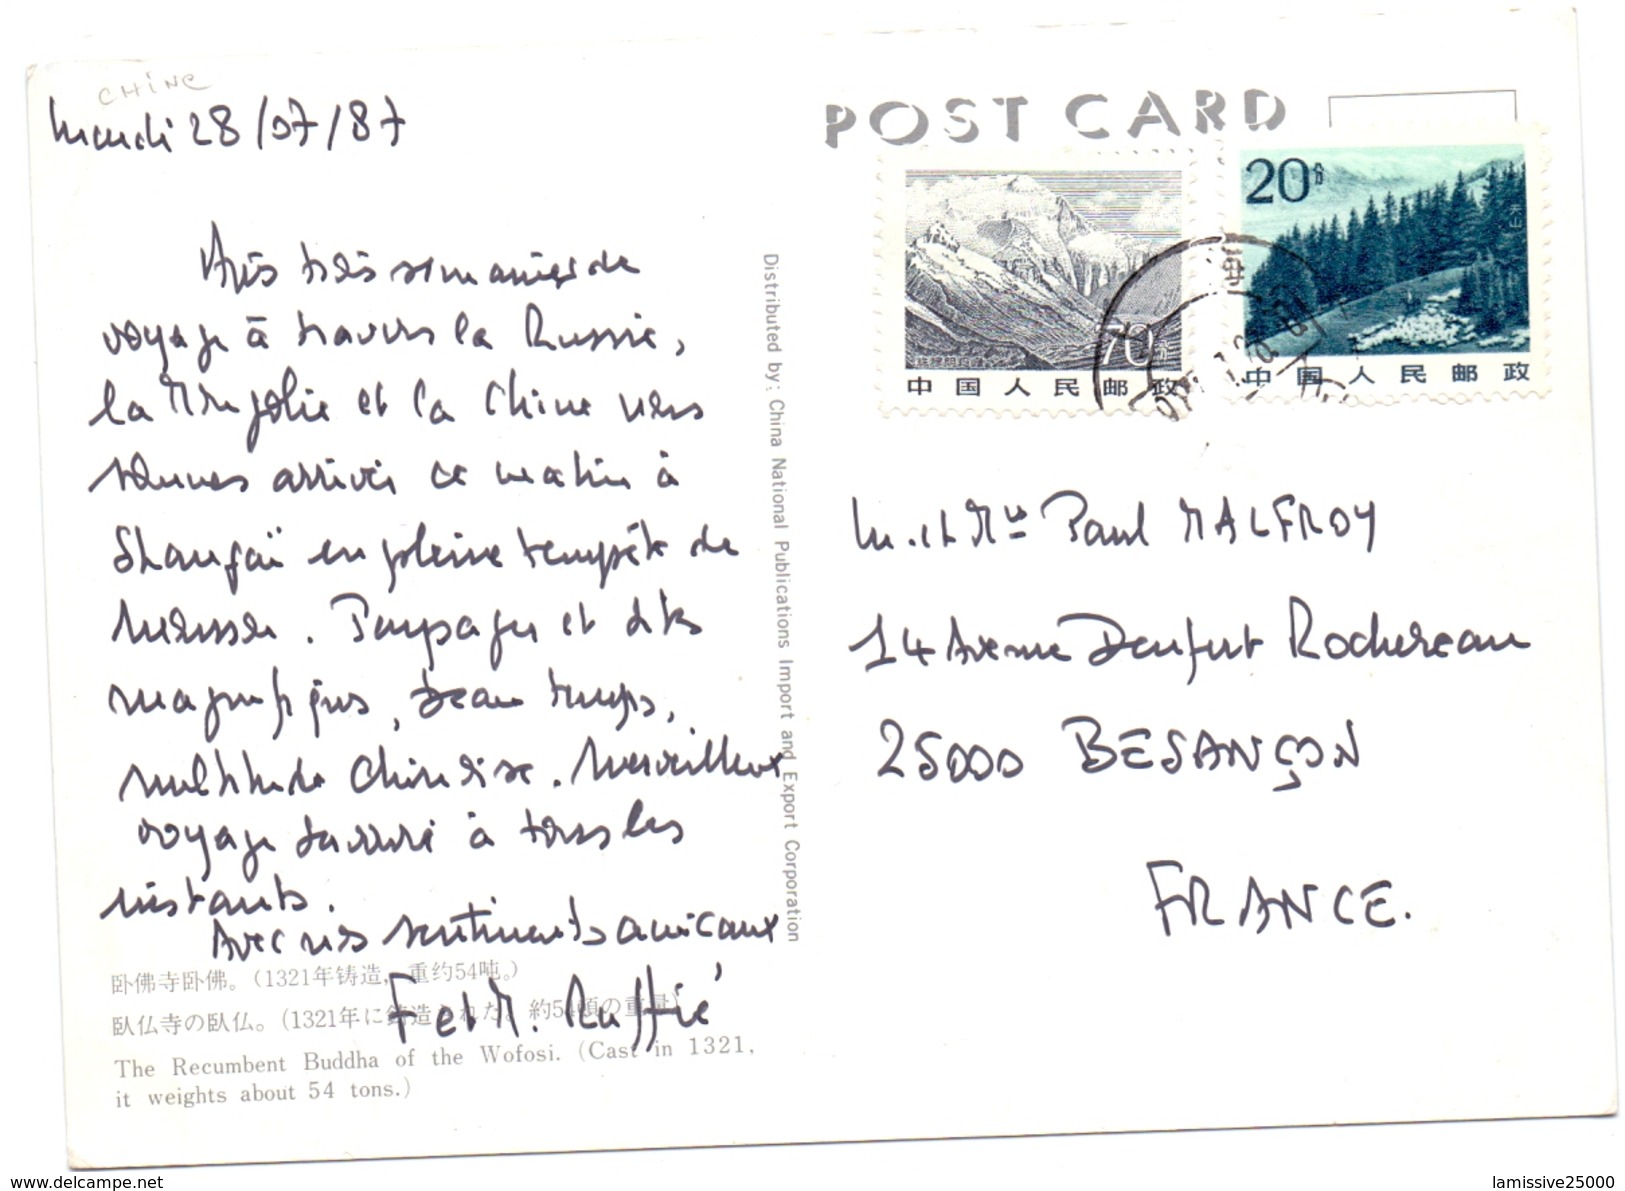 CHINE
Mardi 28/07/87
Après trois semaines de
voyage à travers la Russie,
la Mongolie et la Chine nous
sommes arrivés ce matin à
Shangaï en pleine tempête de
mousson. Paysages et sites
magnifiques, beau temps,
multitude chinoise. Merveilleux
voyage à tous les
instants.
Avec nos sentiments amicaux
F et M. Ruffié
卧佛寺卧佛。(1321年铸造，重约54吨。)
臥仏寺の臥仏。(1321年に鋳造された。約54頓の重量)
The Recumbent Buddha of the Wofosi. (Cast in 1321,
it weights about 54 tons.)
Distributed by: China National Publications Import and Export Corporation
POST CARD
70分
珠穆朗玛峰
中国人民邮政
20分
天山
中国人民邮政
M. et Mme Paul MALFROY
14 Avenue Denfert Rochereau
25000 BESANÇON
FRANCE.
www.delcampe.net
lamissive25000